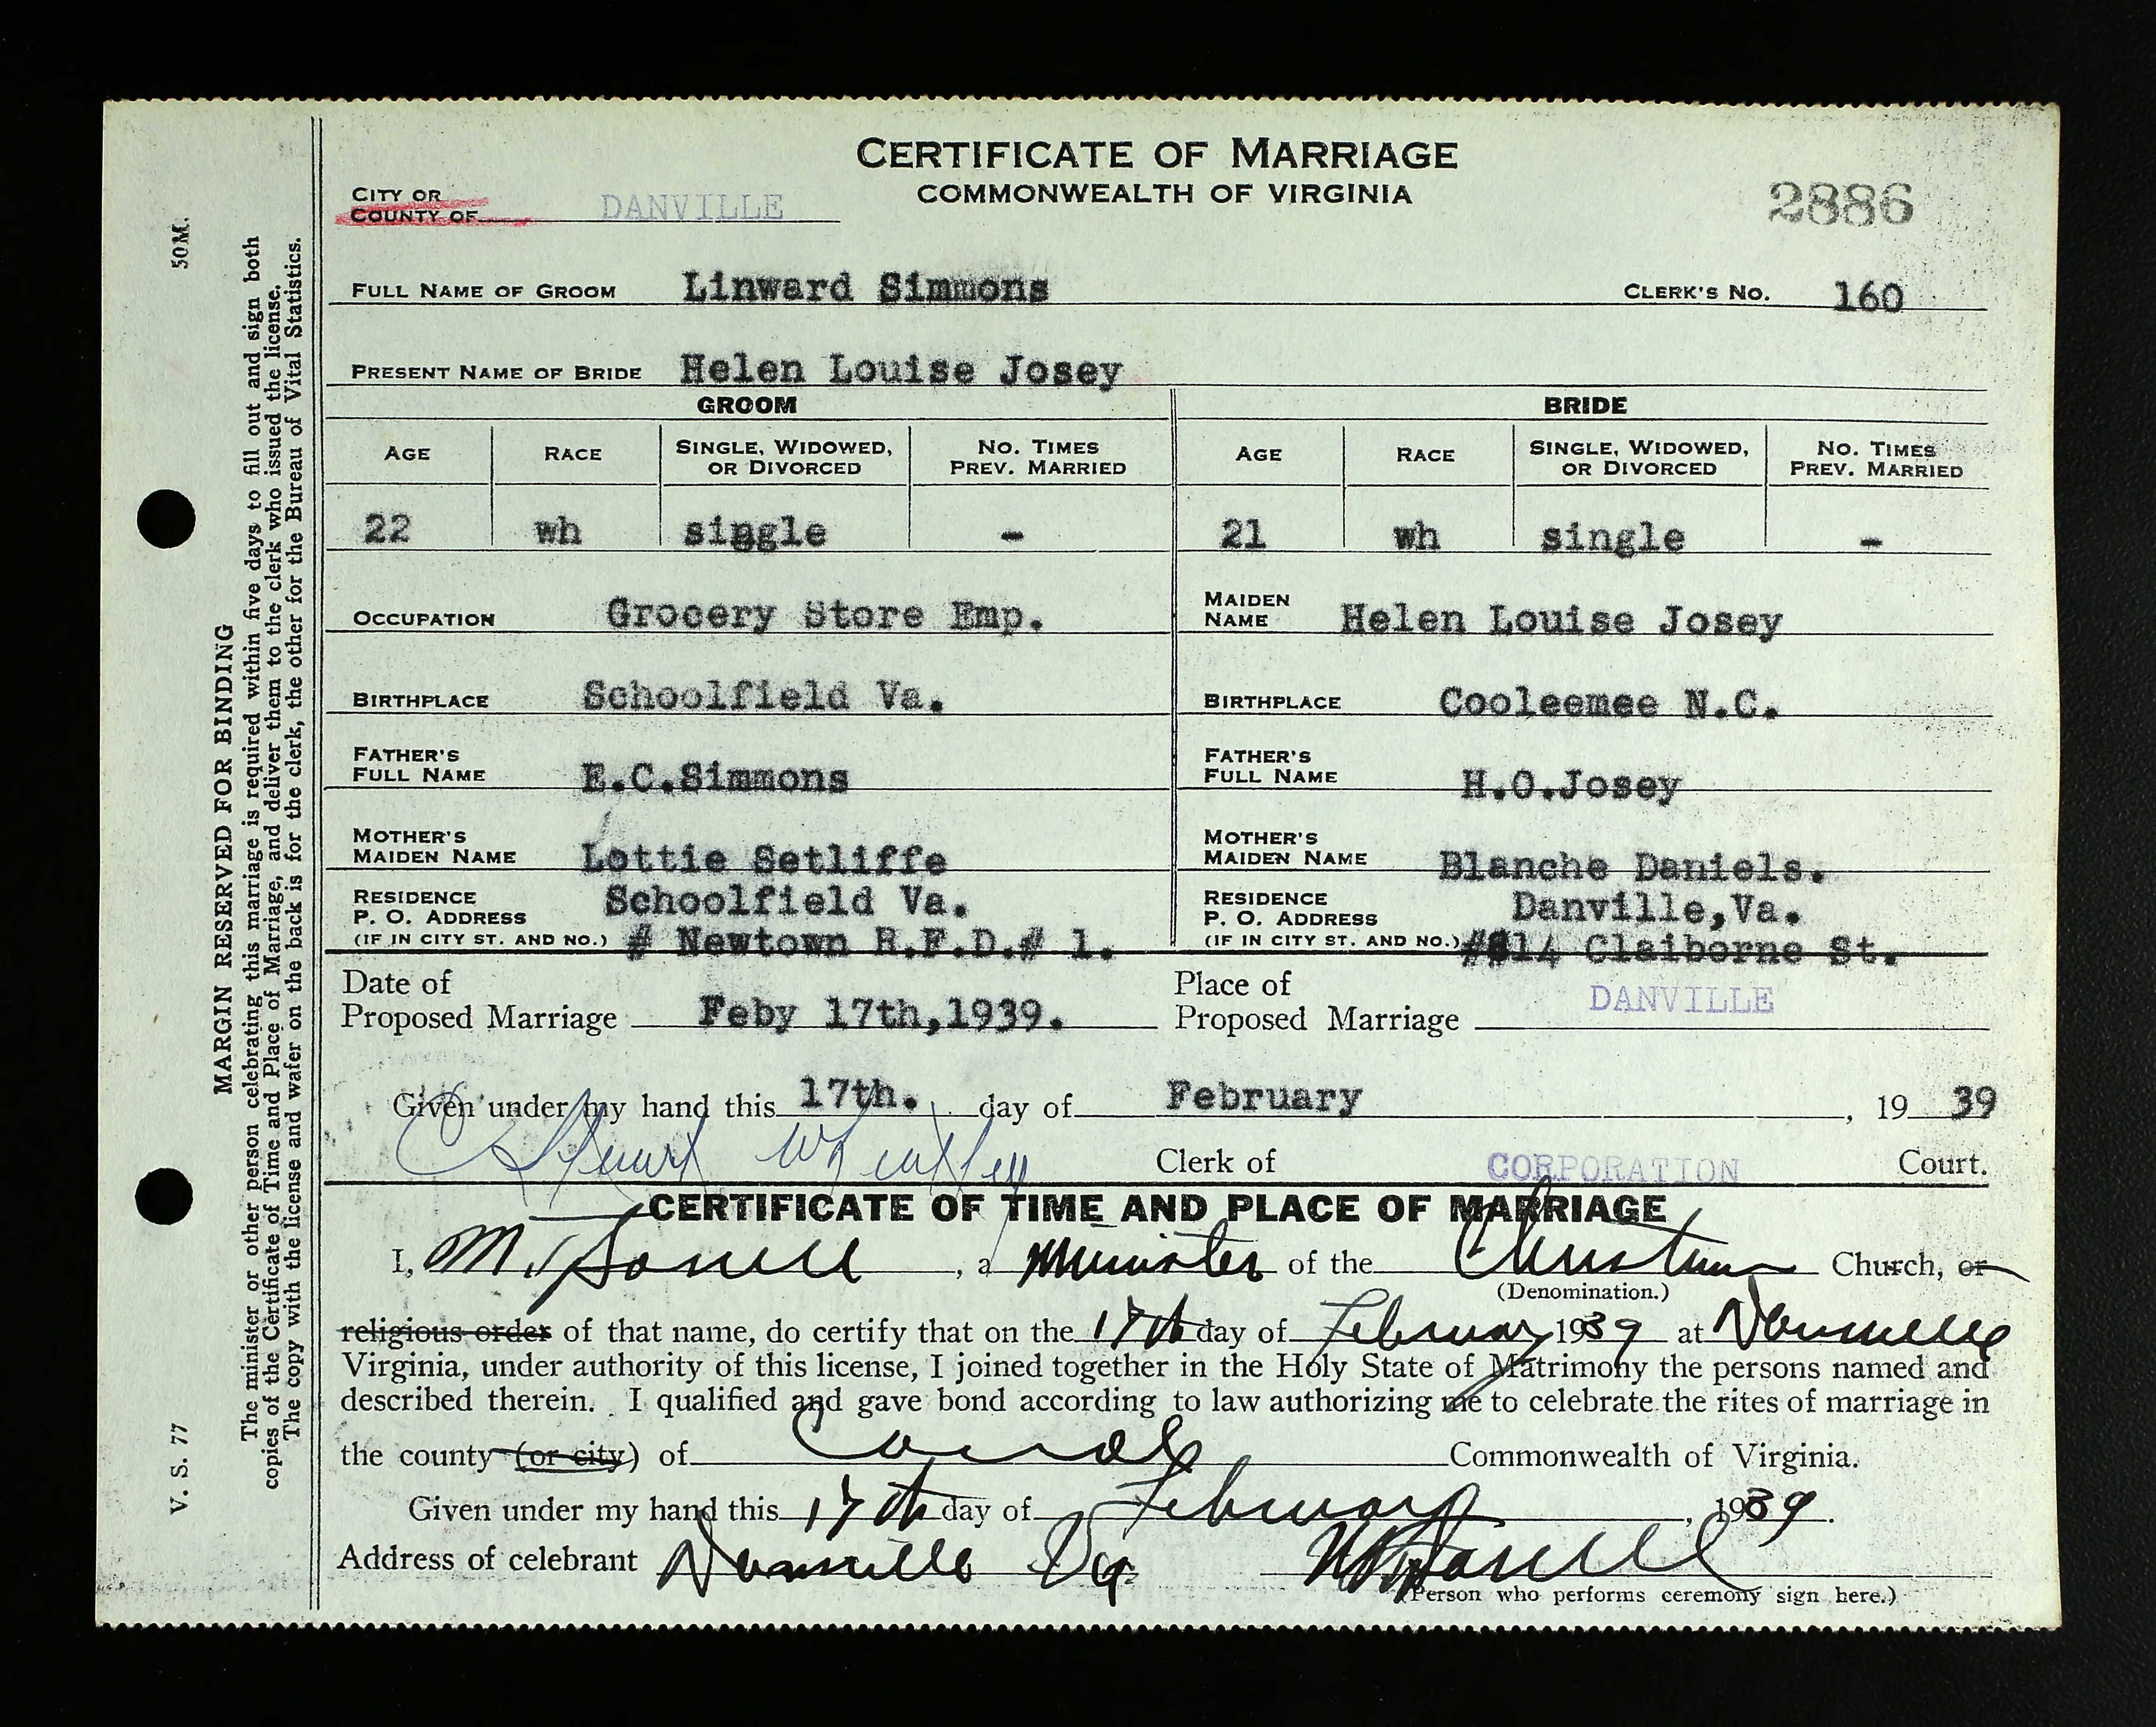 CERTIFICATE OF MARRIAGE
COMMONWEALTH OF VIRGINIA
CITY OR
COUNTY OF DANVILLE
2886
FULL NAME OF GROOM Linward Simmons CLERK'S NO. 160
PRESENT NAME OF BRIDE Helen Louise Josey
GROOM BRIDE
AGE RACE SINGLE, WIDOWED, OR DIVORCED NO. TIMES PREV. MARRIED AGE RACE SINGLE, WIDOWED, OR DIVORCED NO. TIMES PREV. MARRIED
22 wh single - 21 wh single -
OCCUPATION Grocery Store Emp.
MAIDEN NAME Helen Louise Josey
BIRTHPLACE Schoolfield Va.
BIRTHPLACE Cooleemee N.C.
FATHER'S FULL NAME E.C.Simmons
FATHER'S FULL NAME H.O.Josey
MOTHER'S MAIDEN NAME Lottie Setliffe
MOTHER'S MAIDEN NAME Blanche Daniels.
RESIDENCE Schoolfield Va.
P. O. ADDRESS
(IF IN CITY ST. AND NO.) # Newtown R.F.D.# 1.
RESIDENCE Danville,Va.
P. O. ADDRESS
(IF IN CITY ST. AND NO.) Claiborne St.
Date of Proposed Marriage Feby 17th,1939.
Place of Proposed Marriage DANVILLE
Given under my hand this 17th. day of February, 1939
C Stuart Wheatley Clerk of CORPORATION Court.
CERTIFICATE OF TIME AND PLACE OF MARRIAGE
I, , a Minister of the Christian Church, or
(Denomination.)
religious order of that name, do certify that on the 17th day of February 1939 at Danville
Virginia, under authority of this license, I joined together in the Holy State of Matrimony the persons named and
described therein. I qualified and gave bond according to law authorizing me to celebrate the rites of marriage in
the county (or city) of Carroll Commonwealth of Virginia.
Given under my hand this 17th day of February, 1939.
Address of celebrant Danville Va
(Person who performs ceremony sign here.)
MARGIN RESERVED FOR BINDING
The minister or other person celebrating this marriage is required within five days to fill out and sign both
copies of the Certificate of Time and Place of Marriage, and deliver them to the clerk who issued the license.
The copy with the license and wafer on the back is for the clerk, the other for the Bureau of Vital Statistics.
V. S. 77
50M.